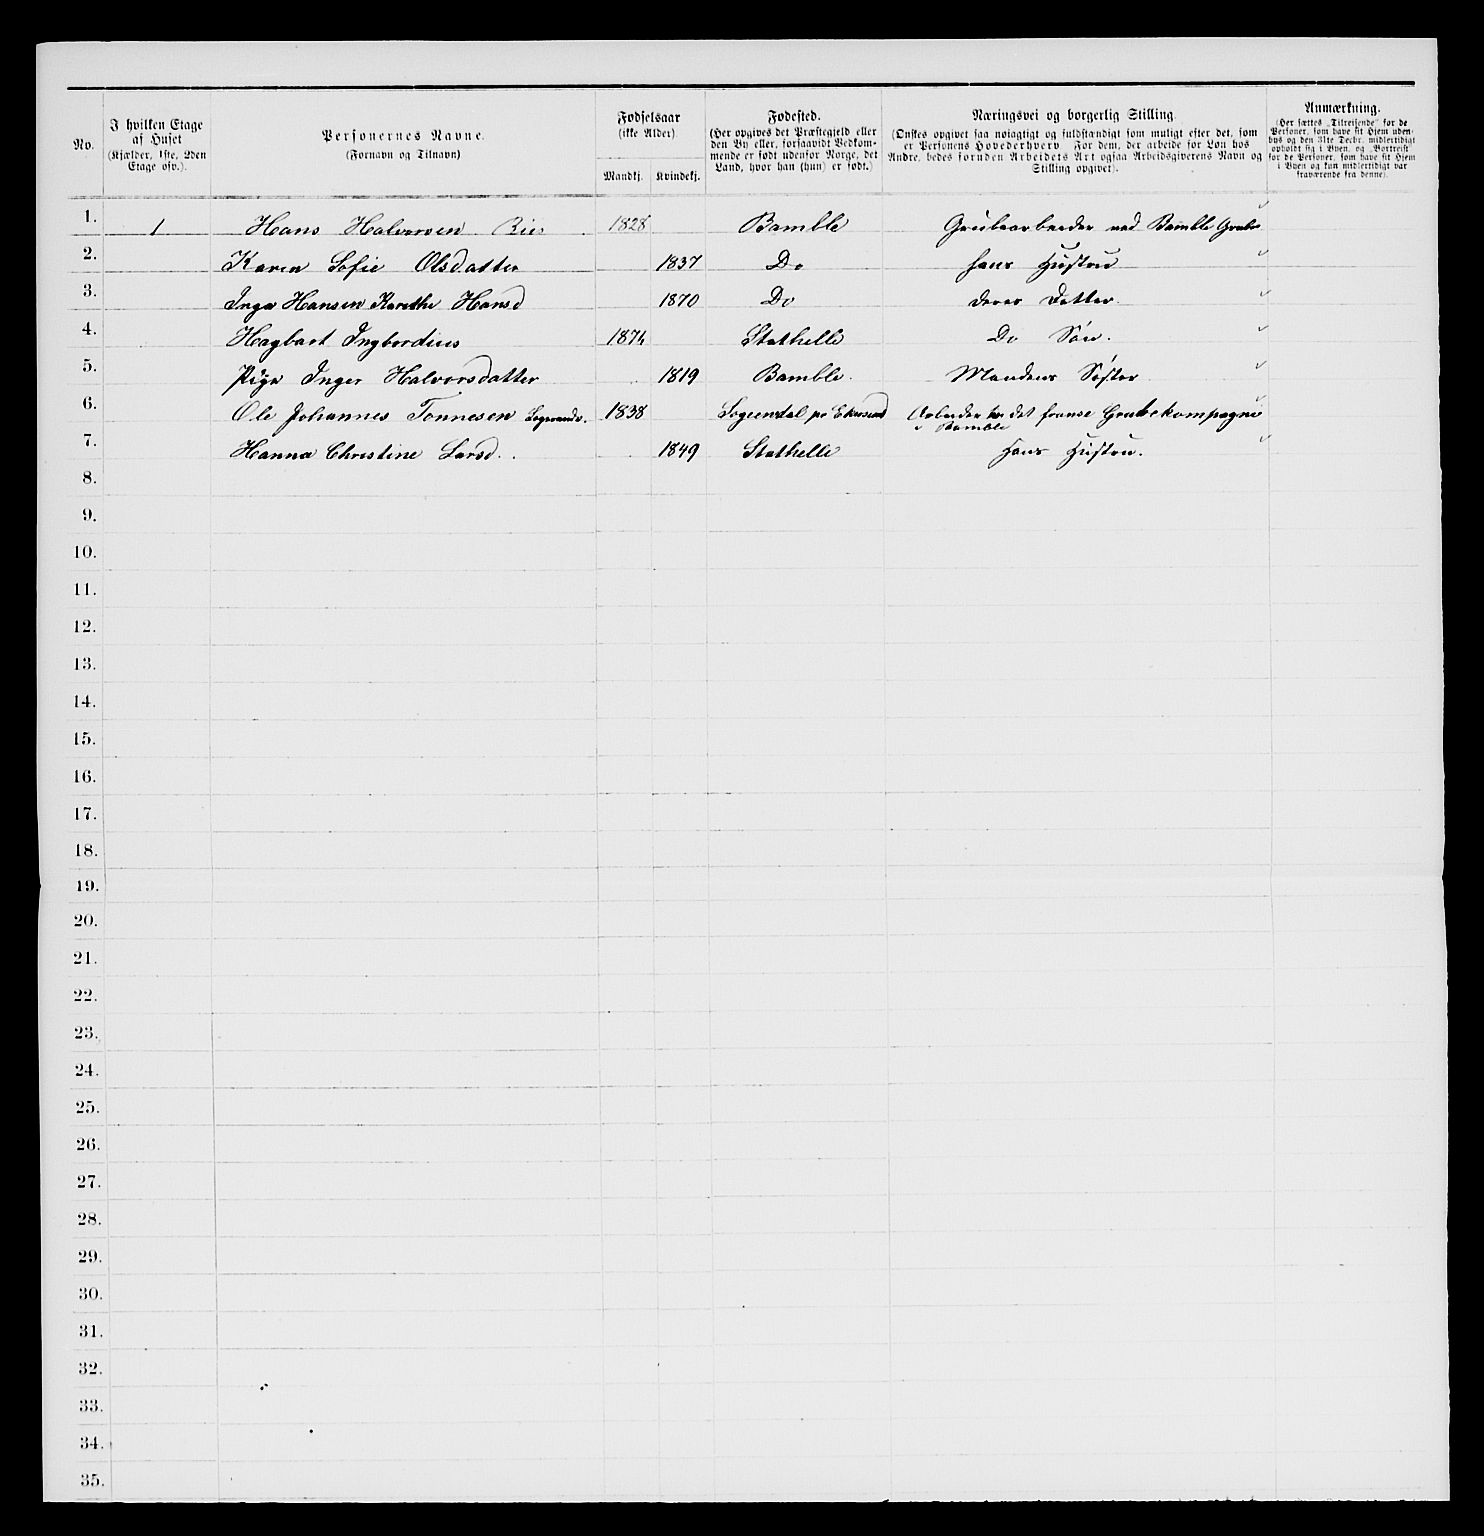 No.
I hvilken Etage
af Huset
(Kjælder, 1ste, 2den
Etage osv.).
Personernes Navne.
(Fornavn og Tilnavn)
Fødselsaar
(ikke Alder)
Mandkj. Kvindekj.
Fødested.
(Her opgives det Præstegjeld eller
den By eller, forsaavidt Vedkom-
mende er født udenfor Norge, det
Land, hvor han (hun) er født.)
Næringsvei og borgerlig Stilling
(Ønskes opgivet saa nøiagtigt og fuldstændigt som muligt efter det, som
er Personens Hovederhverv. For dem, der arbeide for Løn hos
Andre, bedes foruden Arbeidets Art ogsaa Arbeidsgiverens Navn og
Stilling opgivet).
Anmærkning.
(Her sættes „Tilreisende” for de
Personer, som have sit Hjem uden-
bys og den 31te Decbr. midlertidigt
opholdt sig i Byen, og „Bortreist”
for de Personer, som have sit Hjem
i Byen og kun midlertidigt var
fraværende fra denne).
1. 1 Hans Halvorsen Ries 1828 Bamble Grubearbeider ved Bamble Grube
2. Karen Sofie Olsdatter 1837 Do hans Hustru
3. Inga Hansen Karethe Hansd 1870 Do deres Datter
4. Hagbart Ingbordius 1874 Stathelle Do Søn.
5. Pige Inger Halvorsdatter 1819 Bamble. Mandens Søster
6. Ole Johannes Tonnesen 1838 Sogendal pr Ekersund Arbeider for det franse Grubekompagni
i Bamble
7. Hanna Christine Larsd. 1849 Stathelle Hans Hustru.
8.
9.
10.
11.
12.
13.
14.
15.
16.
17.
18.
19.
20.
21.
22.
23.
24.
25.
26.
27.
28.
29.
30.
31.
32.
33.
34.
35.